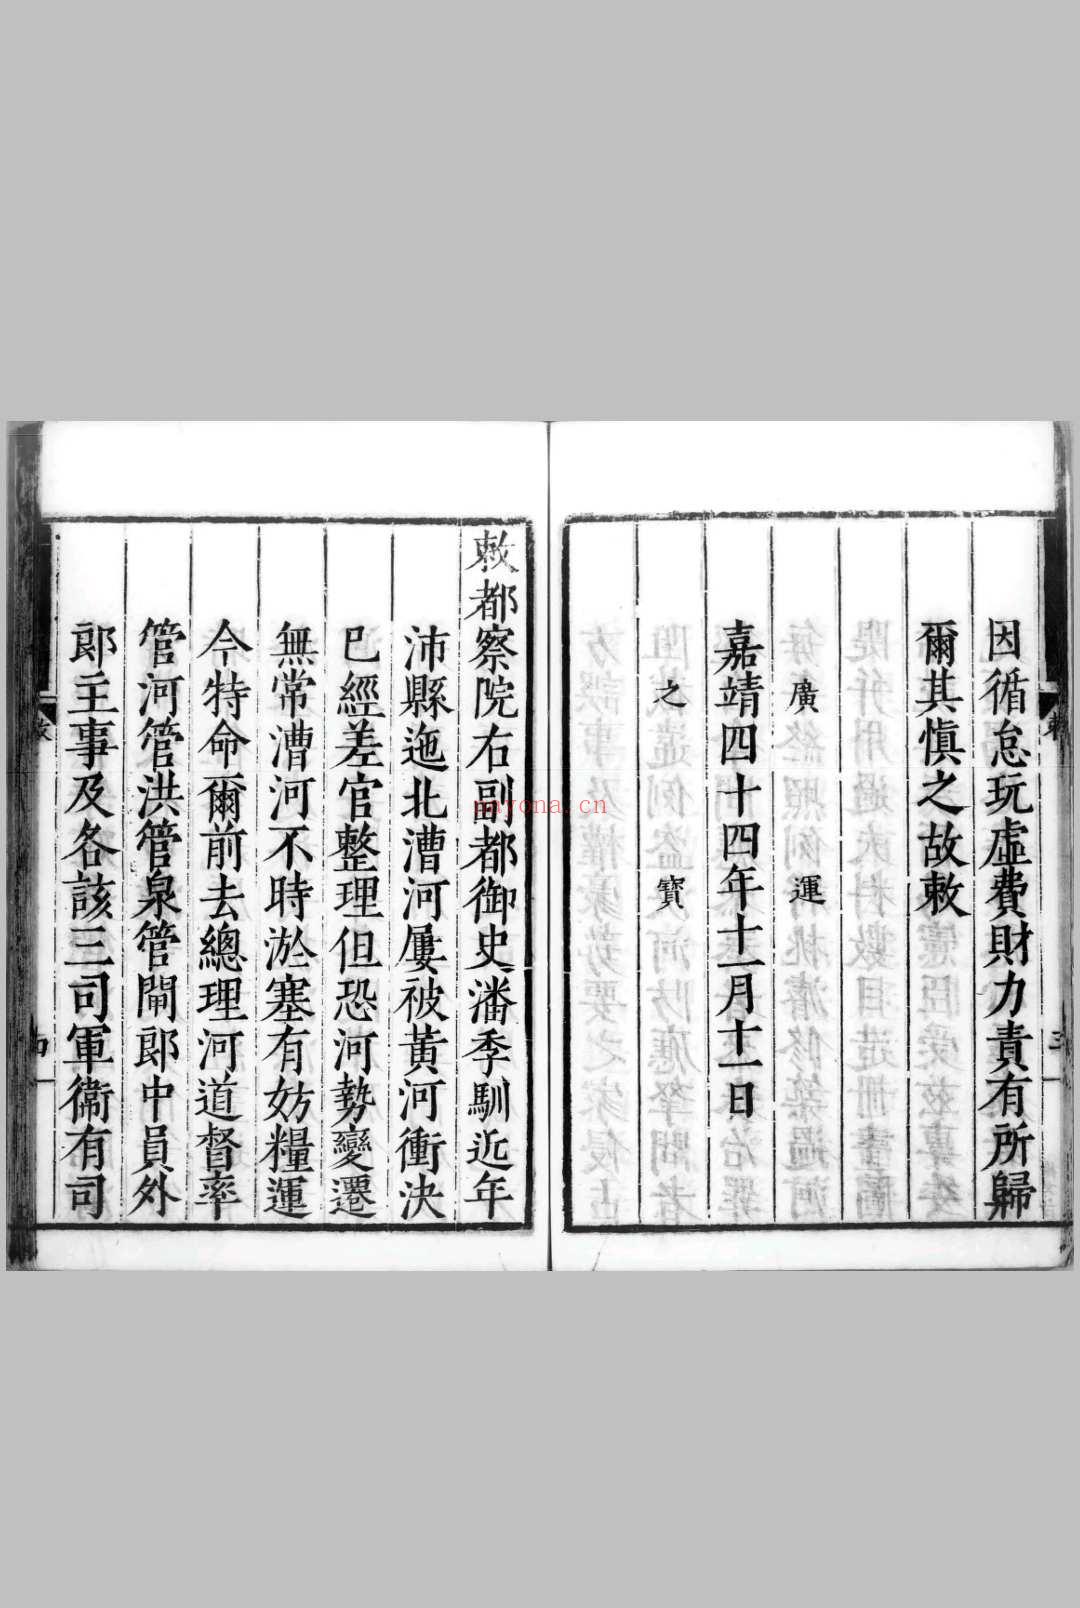 因循怠玩虛費財力責有所歸
爾其慎之故敕
廣運
嘉靖四十四年十一月十一日
之寶
敕都察院右副都御史潘季馴近年
沛縣迤北漕河屢被黃河衝決
已經差官整理但恐河勢變遷
無常漕河不時淤塞有妨糧運
今特命爾前去總理河道督率
管河管洪管泉管閘郎中員外
郎主事及各該三司軍衛有司
nayona.cn